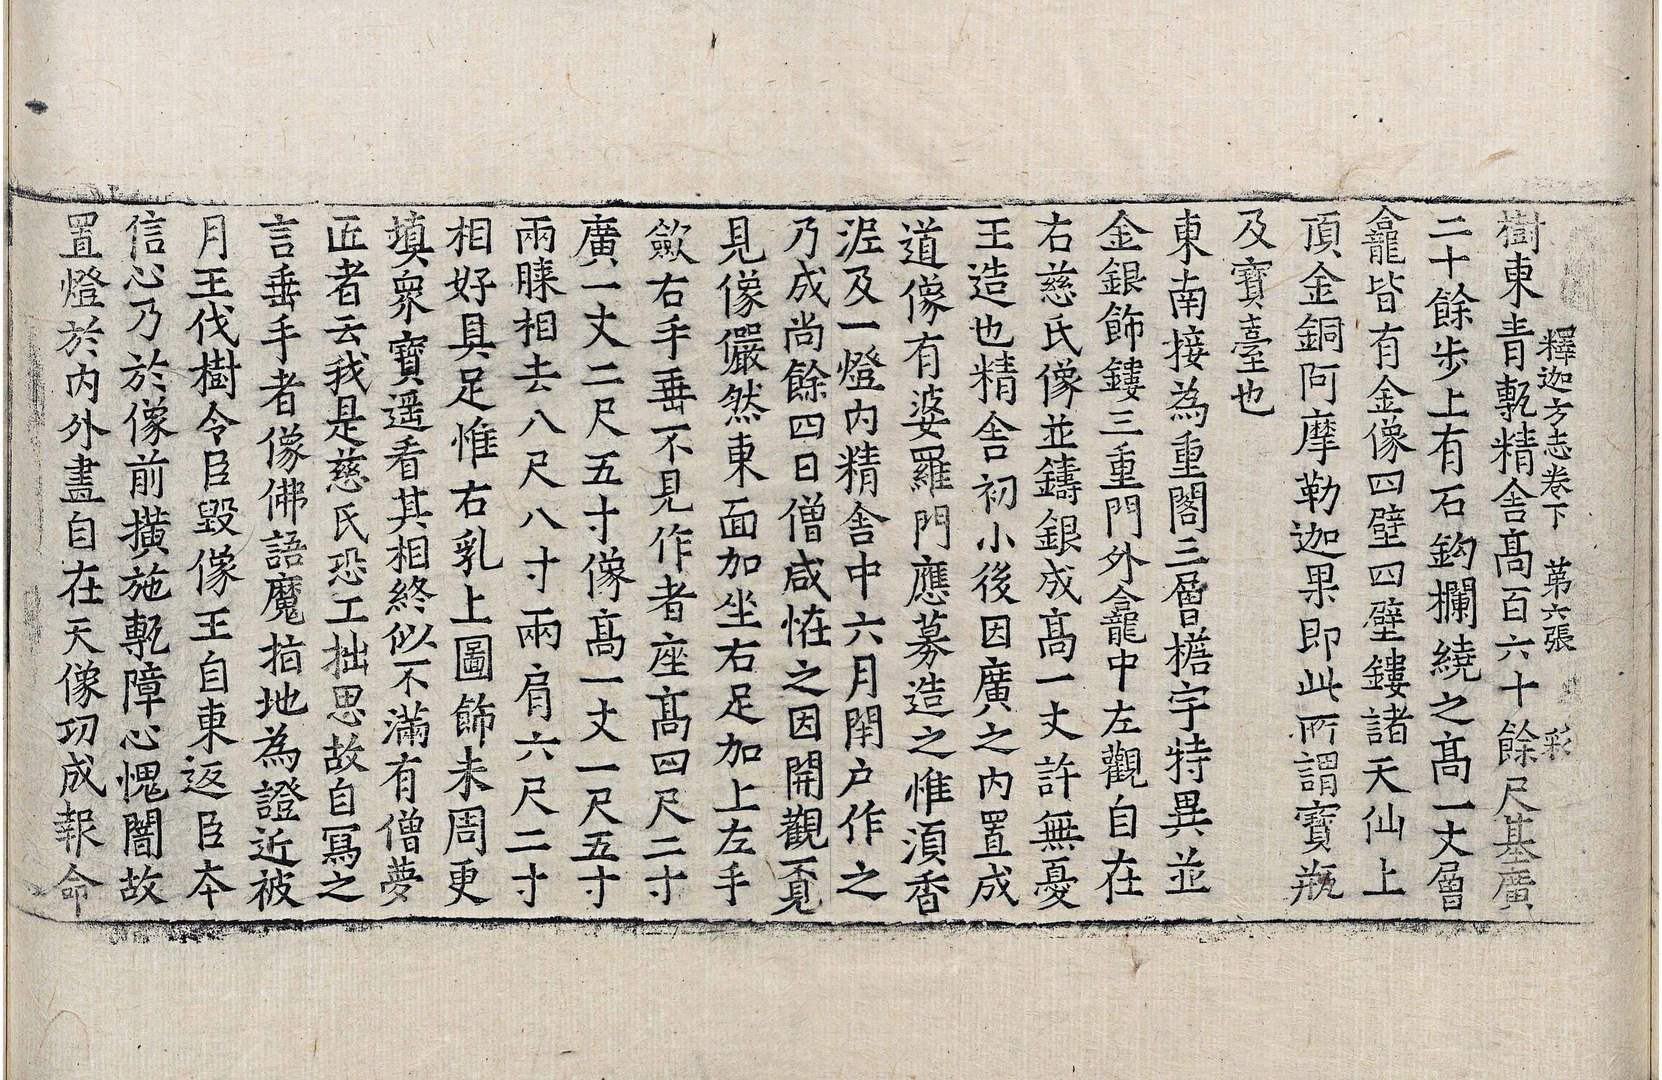 釋迦方志卷下　苐六張　彩
樹東青甎精舍髙百六十餘尺基廣
二十餘步上有石鈎欄繞之髙一丈層
龕皆有金像四壁四壁鏤諸天仙上
頂金銅阿摩勒迦果即此所謂寶瓶
及寶臺也
東南接為重閣三層檐宇特異並
金銀飾鏤三重門外龕中左觀自在
右慈氏像並鑄銀成髙一丈許無憂
王造也精舍初小後因廣之内置成
道像有婆羅門應募造之惟湏香
泥及一燈内精舍中六月閇户作之
乃成尚餘四日僧咸恠之因開觀覔
見像儼然東面加坐右足加上左手
歛右手垂不見作者座髙四尺二寸
廣一丈二尺五寸像髙一丈一尺五寸
兩膝相去八尺八寸兩肩六尺二寸
相好具足惟右乳上圖飾未周更
填衆寶遥看其相終似不滿有僧夢
匠者云我是慈氏恐工拙思故自寫之
言垂手者像佛語魔指地為證近被
月王伐樹令臣毀像王自東返臣本
信心乃於像前撗施甎障心愧闇故
置燈於内外畫自在天像功成報命